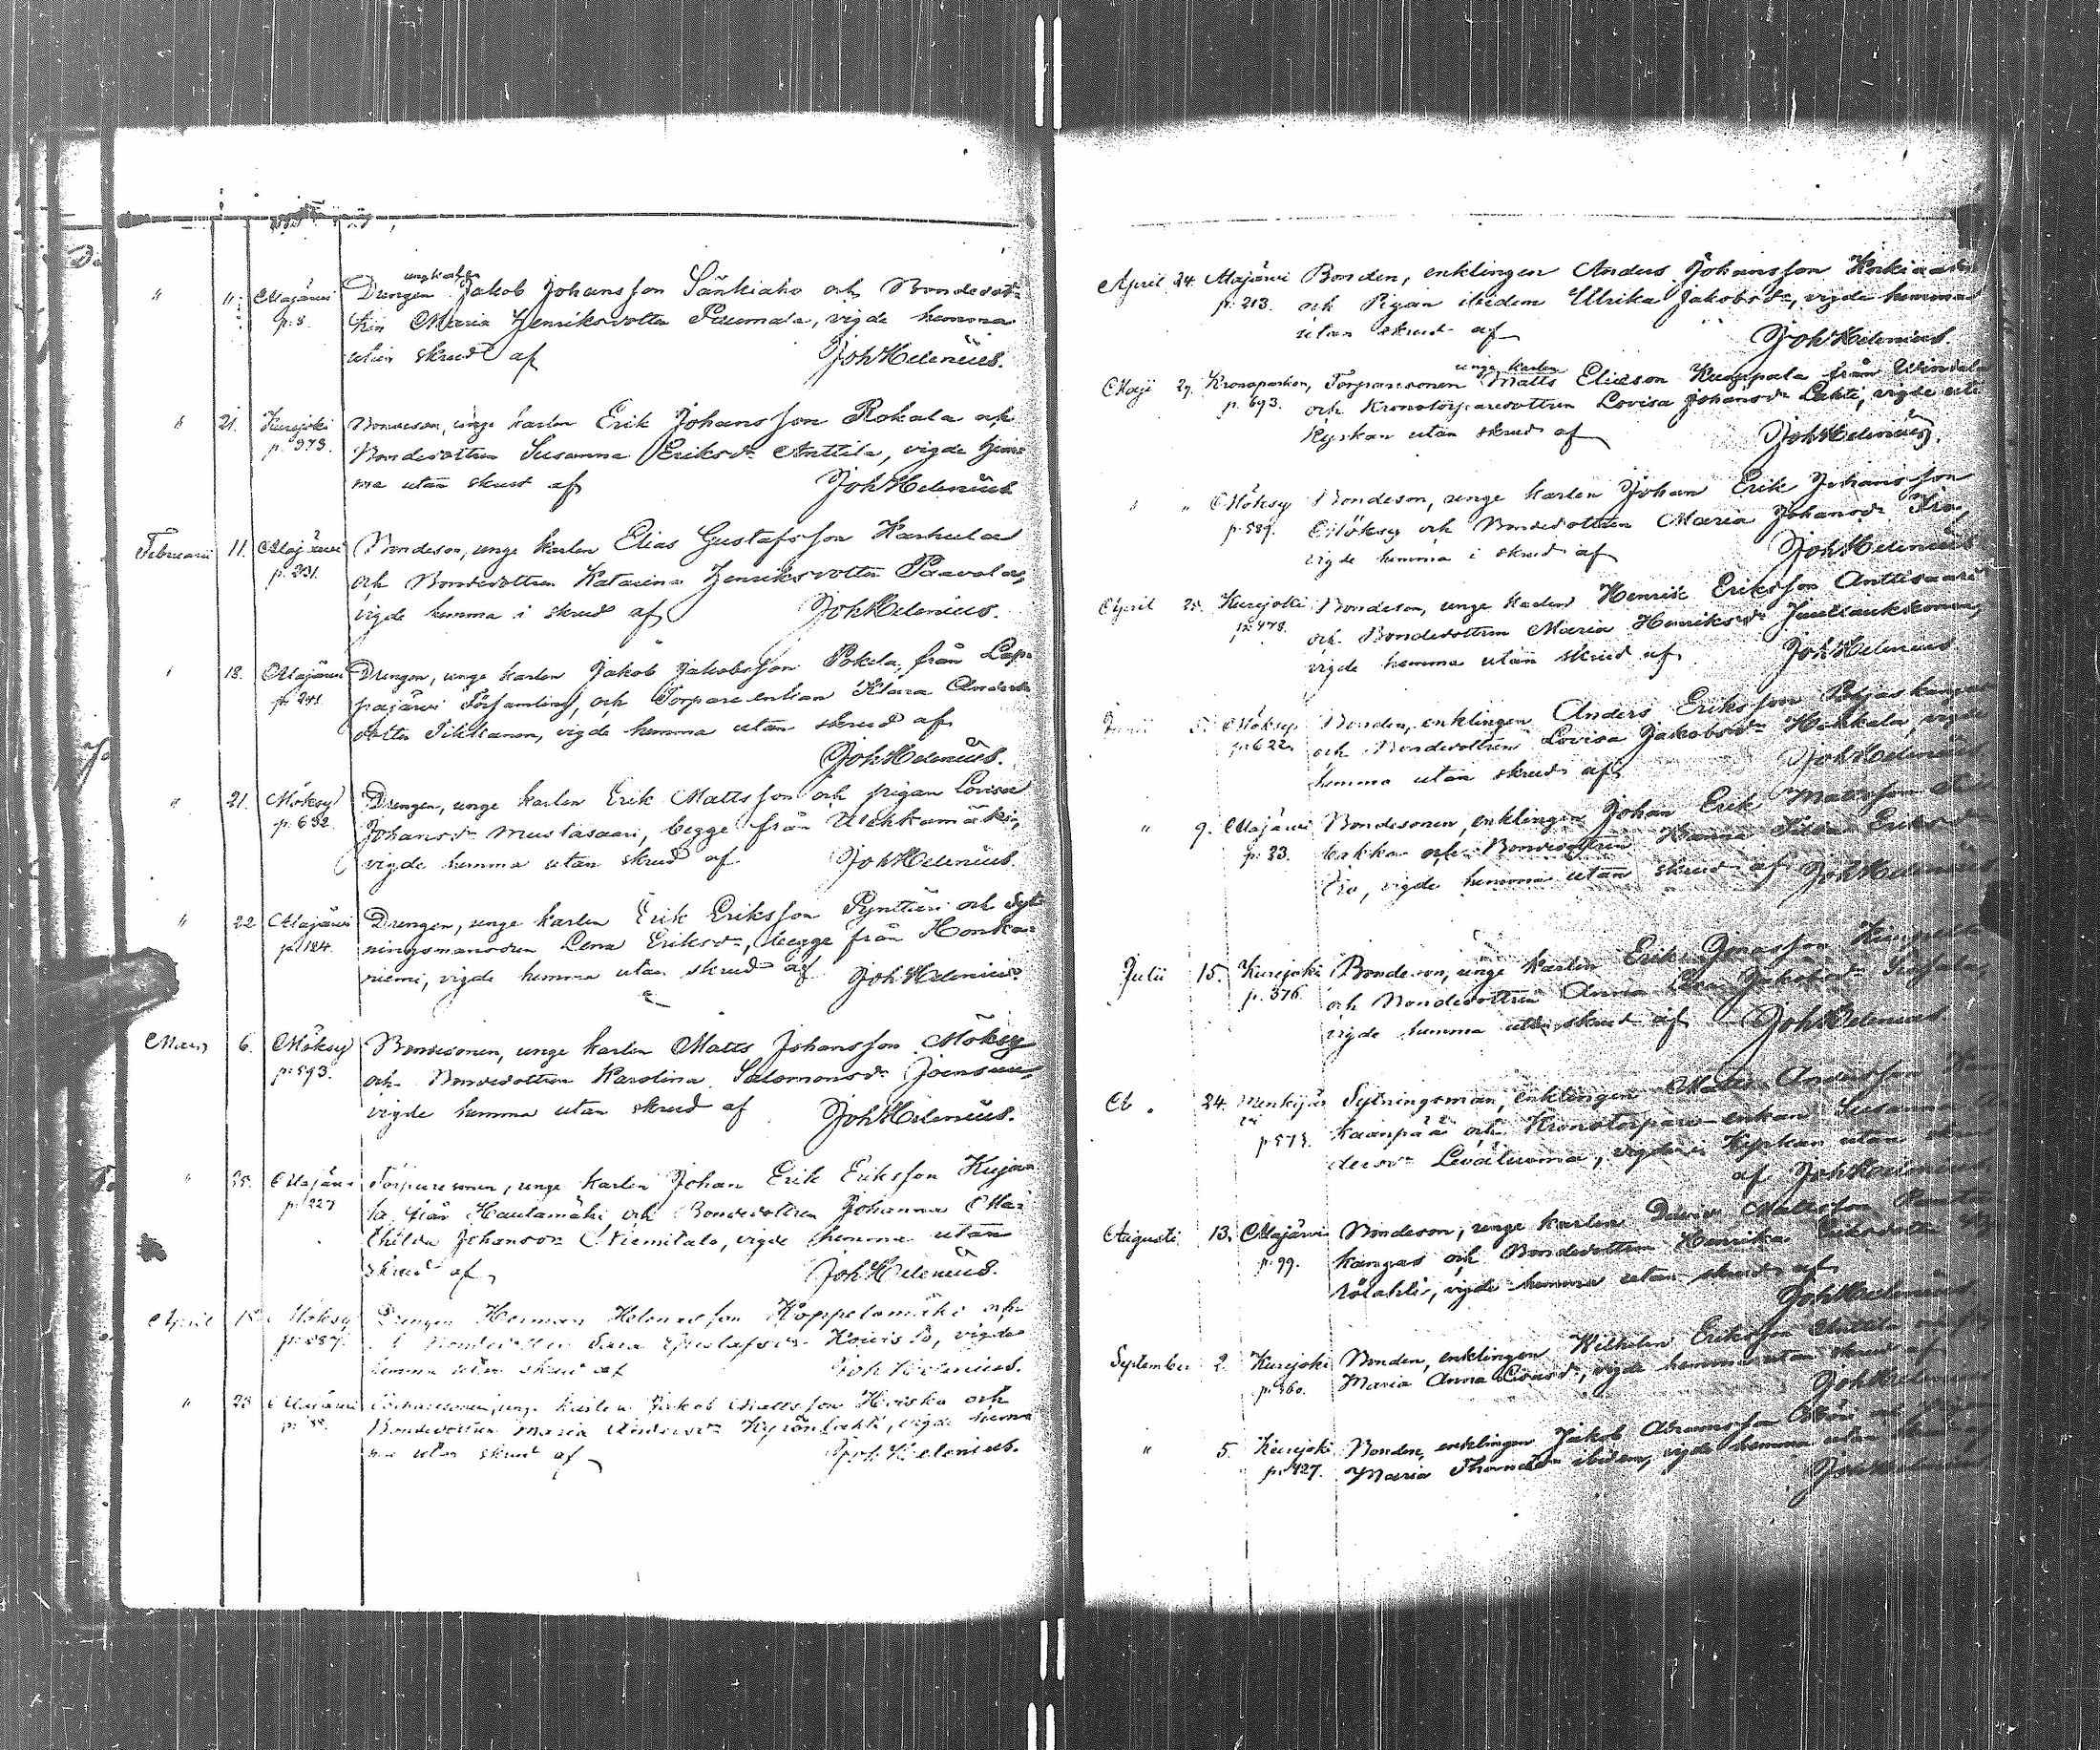 " 11. Alajärvi Drengen unge karlen Jakob Johansson Sänkiaho och Bondedot-
p. 8. Maria Henriksdotter Paumala, vigde hemma
utan skrud af Joh Helenius.
" 21. Kurejoki Bondeson, unge karlen Erik Johansson Rokala och
p. 373. Bondedottren Susanna Eriksdr Anttila, vigde hem-
ma utan skrud af Joh Helenius
Februarii 11. Alajärvi Bondeson, unge karlen Elias Gustafsson Karhula
p. 231. och Bondedottren Katarina Henriksdotter Paavola,
vigde hemma i skrud af Joh Helenius.
" 18. Alajärvi Drengen, unge karlen Jakob Jakobsson Pokela, från Lap-
p. 241. pajärvi Församling, och Torpare enkan Klara Anders
dotter Tikkanen, vigde hemma utan skrud af
Joh Helenius.
" 21. Möksy Drengen, unge karlen Erik Mattsson och pigan Lovisa
p. 632. Johansdr Mustasaari, begge från
vigde hemma utan skrud af Joh Helenius.
" 22 Alajärvi Drengen, unge karlen Erik Eriksson Pynttäri och Syt-
p. 124. ningsmansdren Lena Eriksdr, begge från Honka-
niemi, vigde hemma utan skrud af Joh Helenius.
Mars 6. Möksy Bondesonen, unge karlen Matts Johansson Möksy
p. 593. och Bondedottren Karolina Salomonsdr Joensuu,
vigde hemma utan skrud af Joh Helenius.
" 25. Alajärvi Torparesonen, unge karlen Johan Erik Eriksson Kujan
p. 227 från Hautamäki och Bondedottren Johanna Ma-
thilda Johansdr Niemitalo, vigde hemma utan
skrud af Joh Helenius.
April Möksy Drengen Herman Helenasson Koppelomäki och
p. 587. Bondedottren Sara Gustafsdr Koivisto, vigde
hemma utan skrud af Joh Helenius.
" 23 Alajärvi Torparesonen, unge karlen Jakob Mattsson Heiska och
Bondedottren Maria Andersdr Kyrönlahti, vigde hem-
ma utan skrud af Joh Helenius.
April 24. Alajärvi Bonden, enklingen Anders Johansson
p. 213. och Pigan ibidem Ulrika Jakobsdr, vigde hemma
utan skrud af Joh Helenius.
Maji 29. Kronoparken, Torparesonen unge karlen Matts Eliasson Kumpala från
p. 693. och Kronotorparedottren Lovisa Johansdr Lahti, vigde uti
Kyrkan utan skrud af Joh Helenius.
" " Möksy Bondeson, unge karlen Johan Erik Johansson
p. 589. Möksy och Bondedottren Maria Johansdr
vigde hemma i skrud af Joh Helenius
April 25. Kurejoki Bondeson, unge karlen Henrik Eriksson Anttisaari
p. 478. och Bondedottren Maria Henriksdr
vigde hemma utan skrud af Joh Helenius
Junii 5. Möksy Bonden, enklingen Anders Eriksson Pohjaskangas
p. 622. och Bondedottren Lovisa Jakobsdr Hakkala, vigde
hemma utan skrud af Joh Helenius
" 9. Alajärvi Bondesonen, enklingen Johan Erik Mattsson
p. 23. och Bondedottren Eriksdr
vigde hemma utan skrud af Joh Helenius
Julii 15. Kurejoki Bondeson, unge karlen Erik Jonasson
p. 376. och Bondedottren Anna Jakobsdr
vigde hemma utan skrud af Joh Helenius
" 24. Sytningsman, enklingen Matts Andersson
p. 573. kaanpää och Kronotorpare-enkan Susanna
dersdr Leväluoma, vigde i Kyrkan utan skrud
af Joh Helenius
Augusti 13. Alajärvi Bondeson, unge karlen Mattsson
p. 99. kangas och Bondedottren Henrika Eriksdotter
vigde hemma utan skrud af
Joh Helenius
September 2. Kurejoki Bonden, enklingen Wilhelm Eriksson Anttila
p. 360. Maria Anna vigde hemma utan skrud af
Joh Helenius
" 5. Kurejoki Bonden, enklingen Jakob Abramsson
p. 427. Maria ibidem, vigde hemma utan skrud af
Joh Helenius